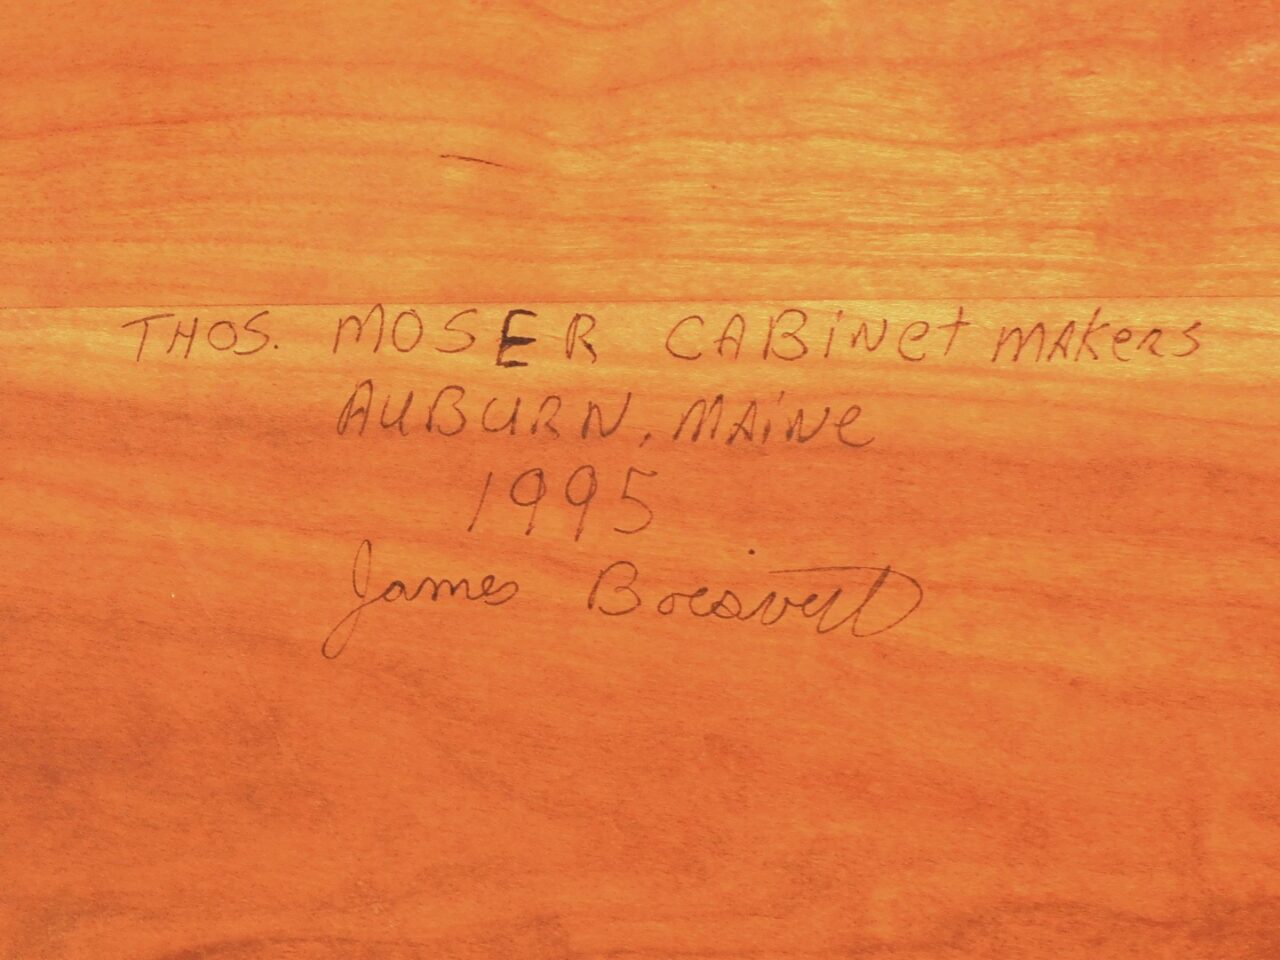 THOS. MOSER CABiNet MAKeRS
AUBURN, MAiNe
1995
James Boisvert